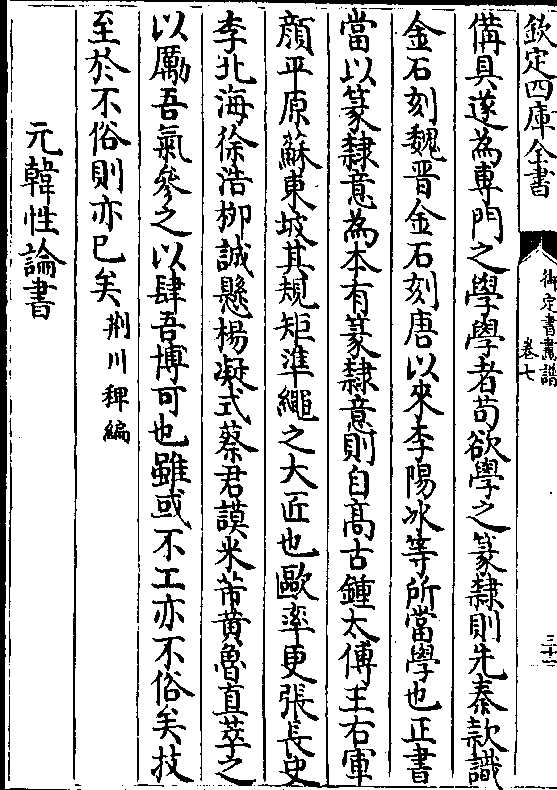 欽定四庫全書
御定書畫譜
卷七
三十三
備具遂為專門之學學者苟欲學之篆隸則先秦款識
金石刻魏晋金石刻唐以來李陽冰等所當學也正書
當以篆隸意為本有篆隸意則自髙古鍾太傅王右軍
顔平原蘇東坡其規矩準繩之大匠也歐率更張長史
李北海徐浩柳誠懸楊凝式蔡君謨米芾黄魯直萃之
以厲吾氣參之以肆吾博可也雖或不工亦不俗矣技
至於不俗則亦已矣荆川稗編
元韓性論書